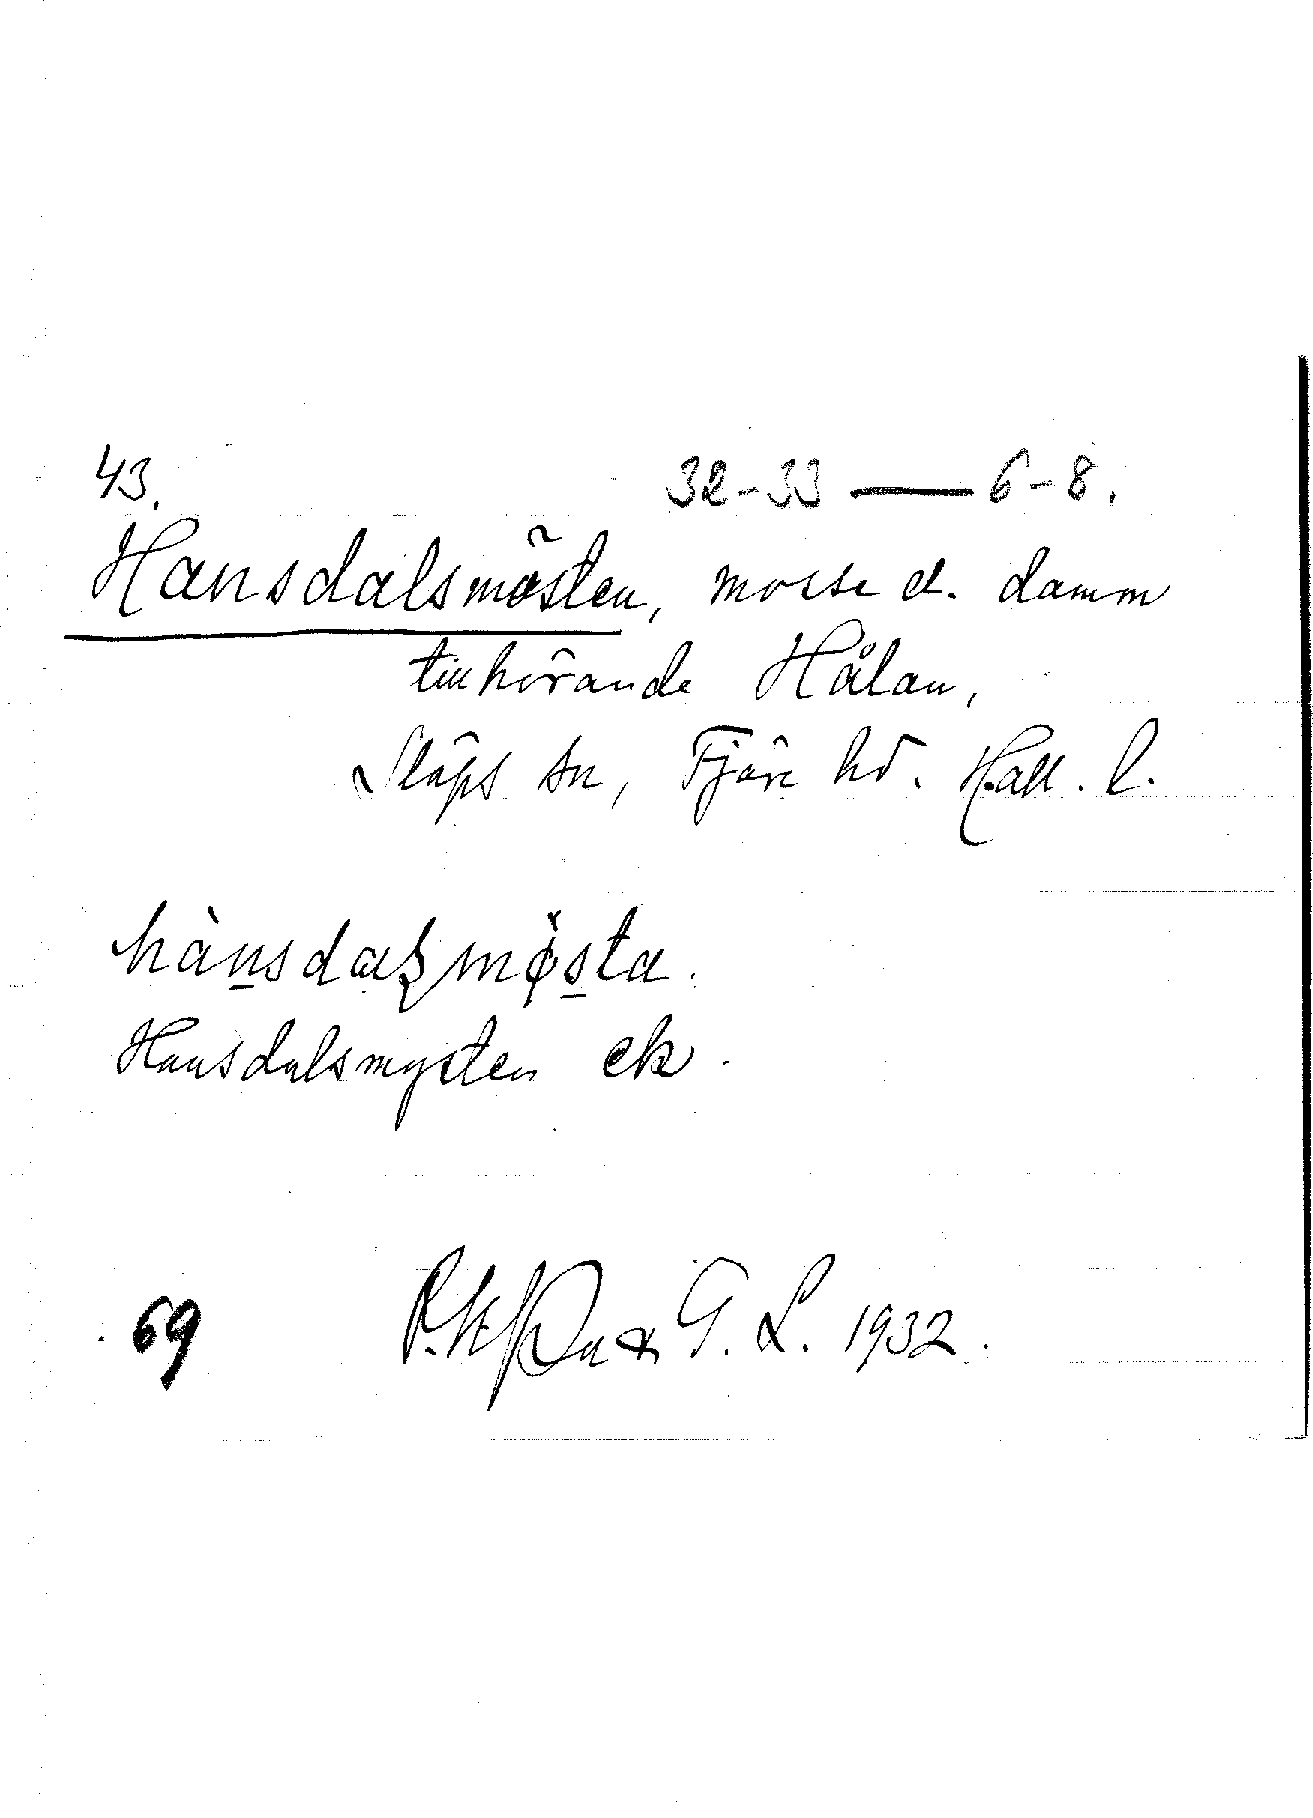 43. 32-33 — 6-8.
Hansdalsmösten, mosse el. damm
tillhörande Hålan,
Släps sn, Fjäre hd. Hall. l.
hànsdalsmøsta.
Hansdalsmysten ek.
69 G. L. 1932.